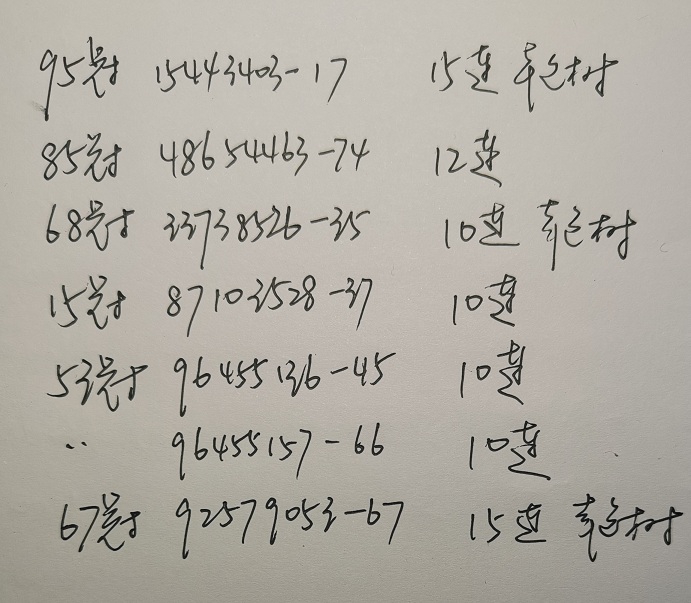 95冠 15443403-17 15连 幸运树
85冠 48654463-74 12连
68冠 33738526-35 10连 幸运树
15冠 87103528-37 10连
53冠 96455136-45 10连
〃 96455157-66 10连
67冠 92579053-67 15连 幸运树